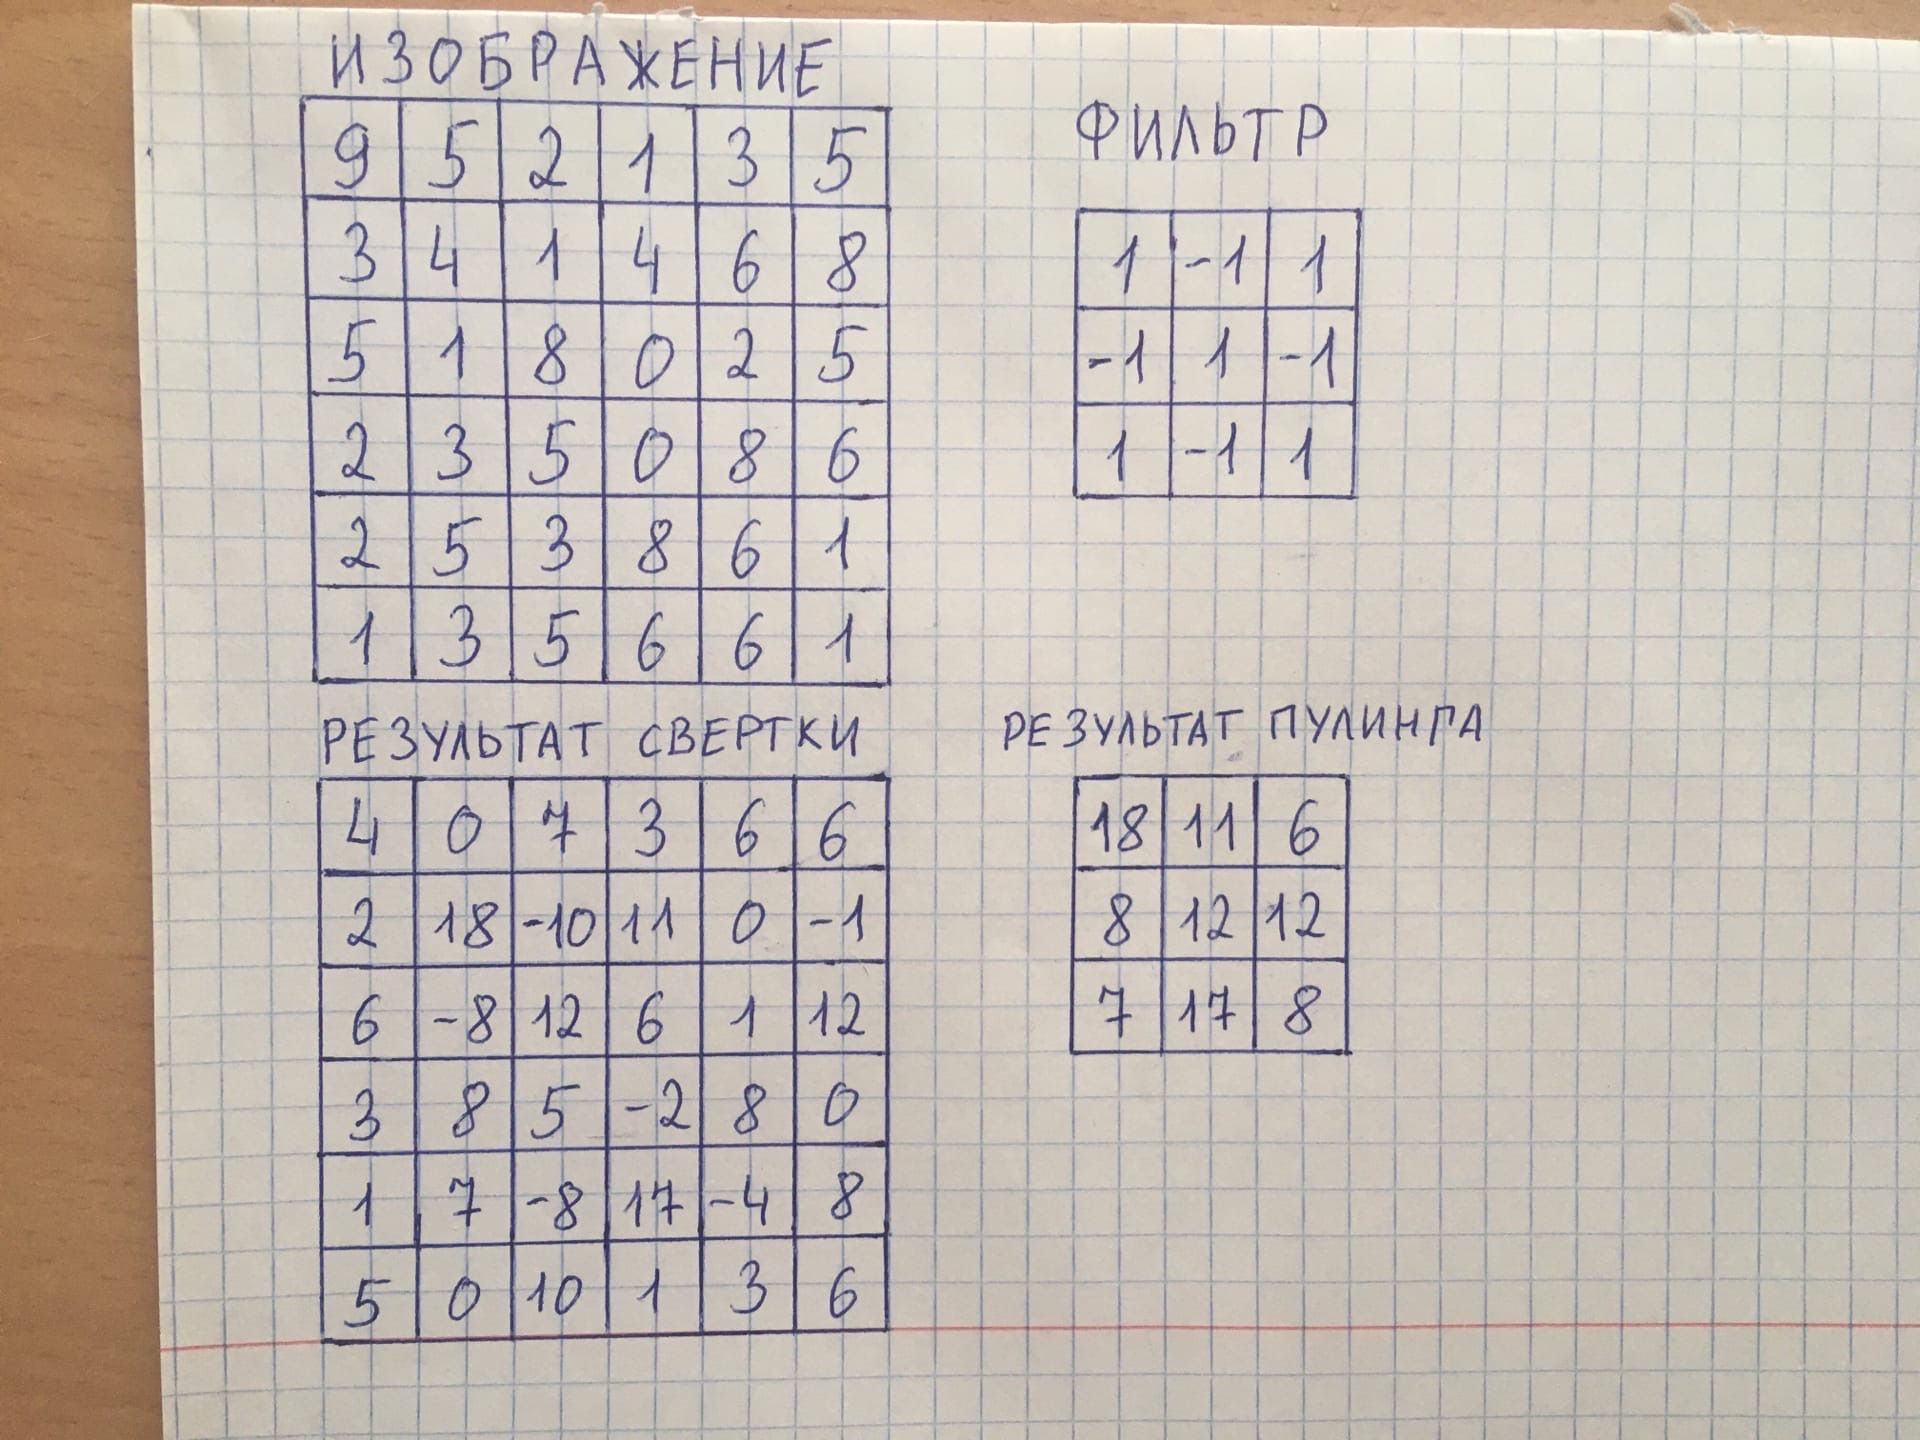 ИЗОБРАЖЕНИЕ
9 5 2 1 3 5
3 4 1 4 6 8
5 1 8 0 2 5
2 3 5 0 8 6
2 5 3 8 6 1
1 3 5 6 6 1
ФИЛЬТР
1 -1 1
-1 1 -1
1 -1 1
РЕЗУЛЬТАТ СВЕРТКИ
4 0 7 3 6 6
2 18 -10 11 0 -1
6 -8 12 6 1 12
3 8 5 -2 8 0
1 7 -8 17 -4 8
5 0 10 1 3 6
РЕЗУЛЬТАТ ПУЛИНГА
18 11 6
8 12 12
7 17 8